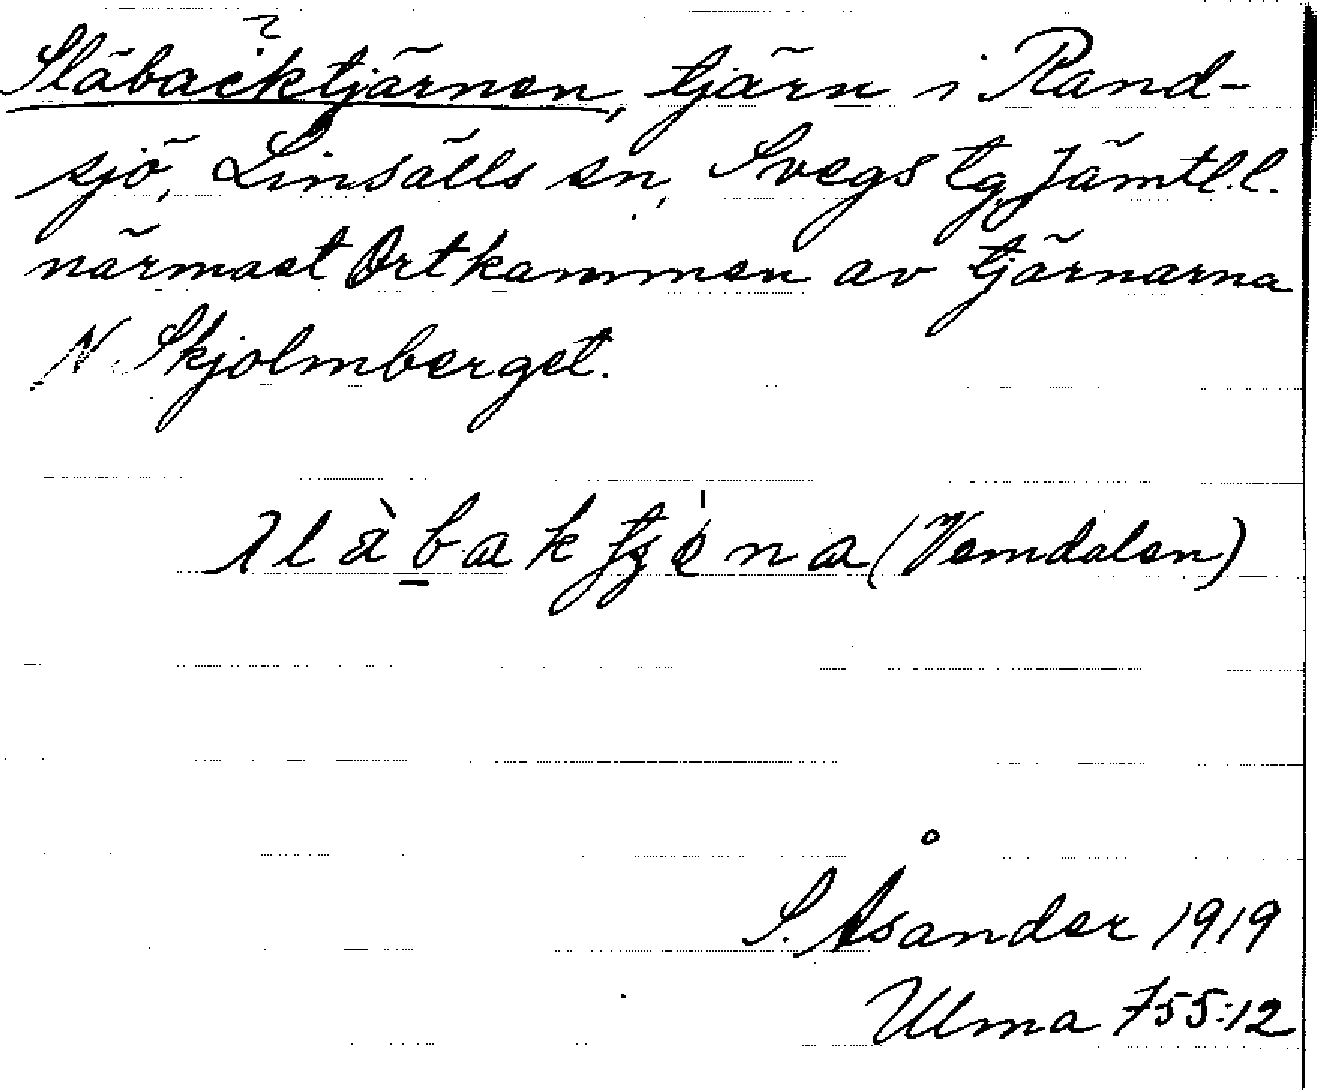 Släbacktjärnen, tjärn i Rand-
sjö, Linsälls sn, Svegs tg, Jämtl.l.
närmast Ortkammen av tjärnarna
N. Skjolmberget.
(Vemdalen)
S. Åsander 1919
Ulma 755:12